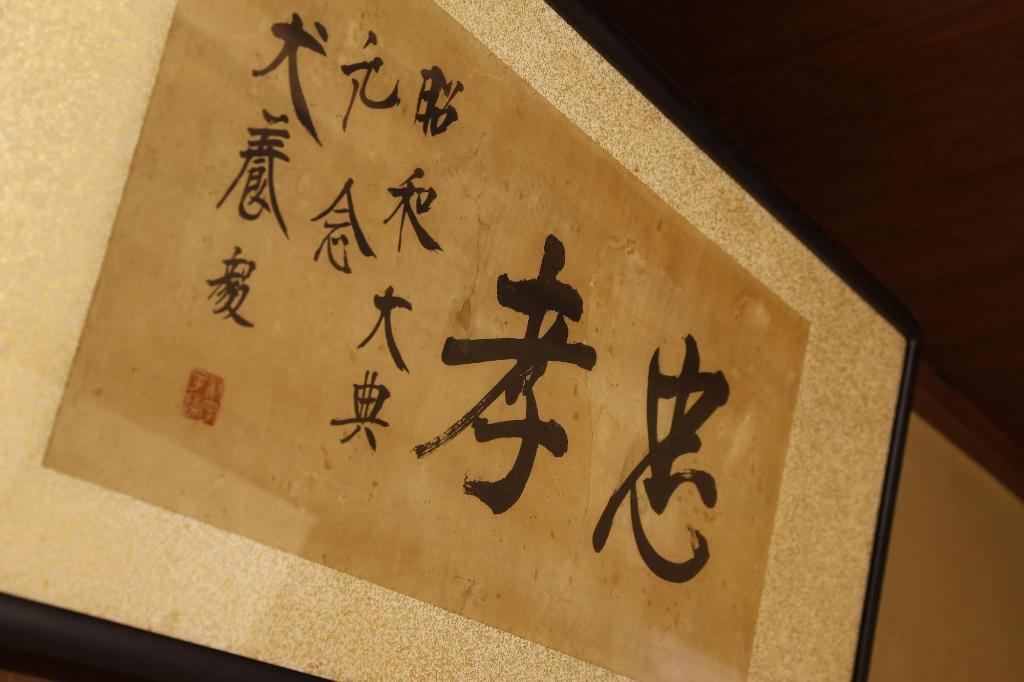 忠孝
昭和大典
元念
犬養毅